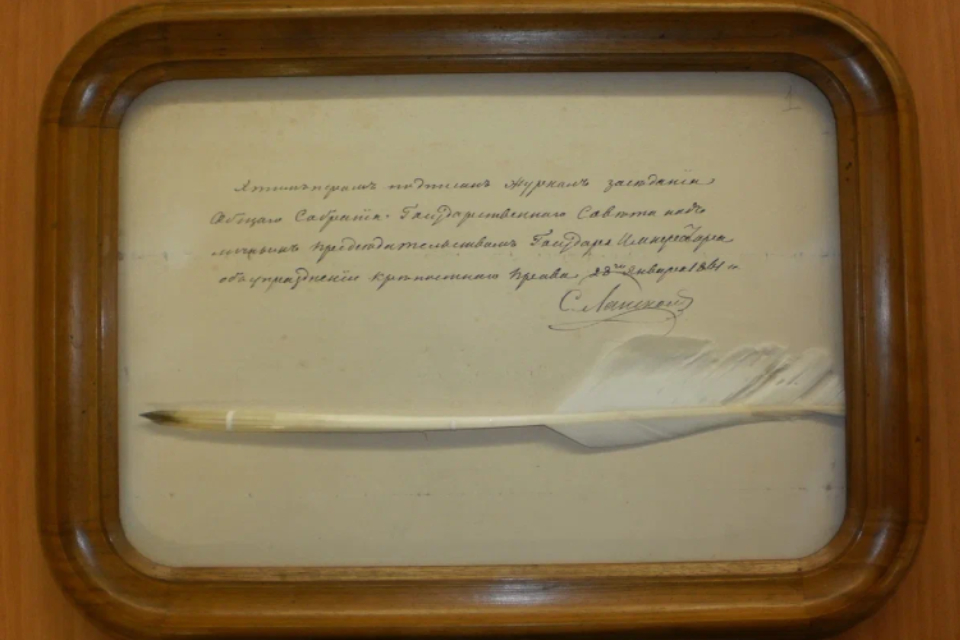 Этимъ перомъ подписанъ журналъ заседанія
Общаго Собранія Государственнаго Совета подъ
личнымъ председательствомъ Государя Императора
объ упраздненіи крепостнаго права 28го Января 1861 г.
С. Ланской
1